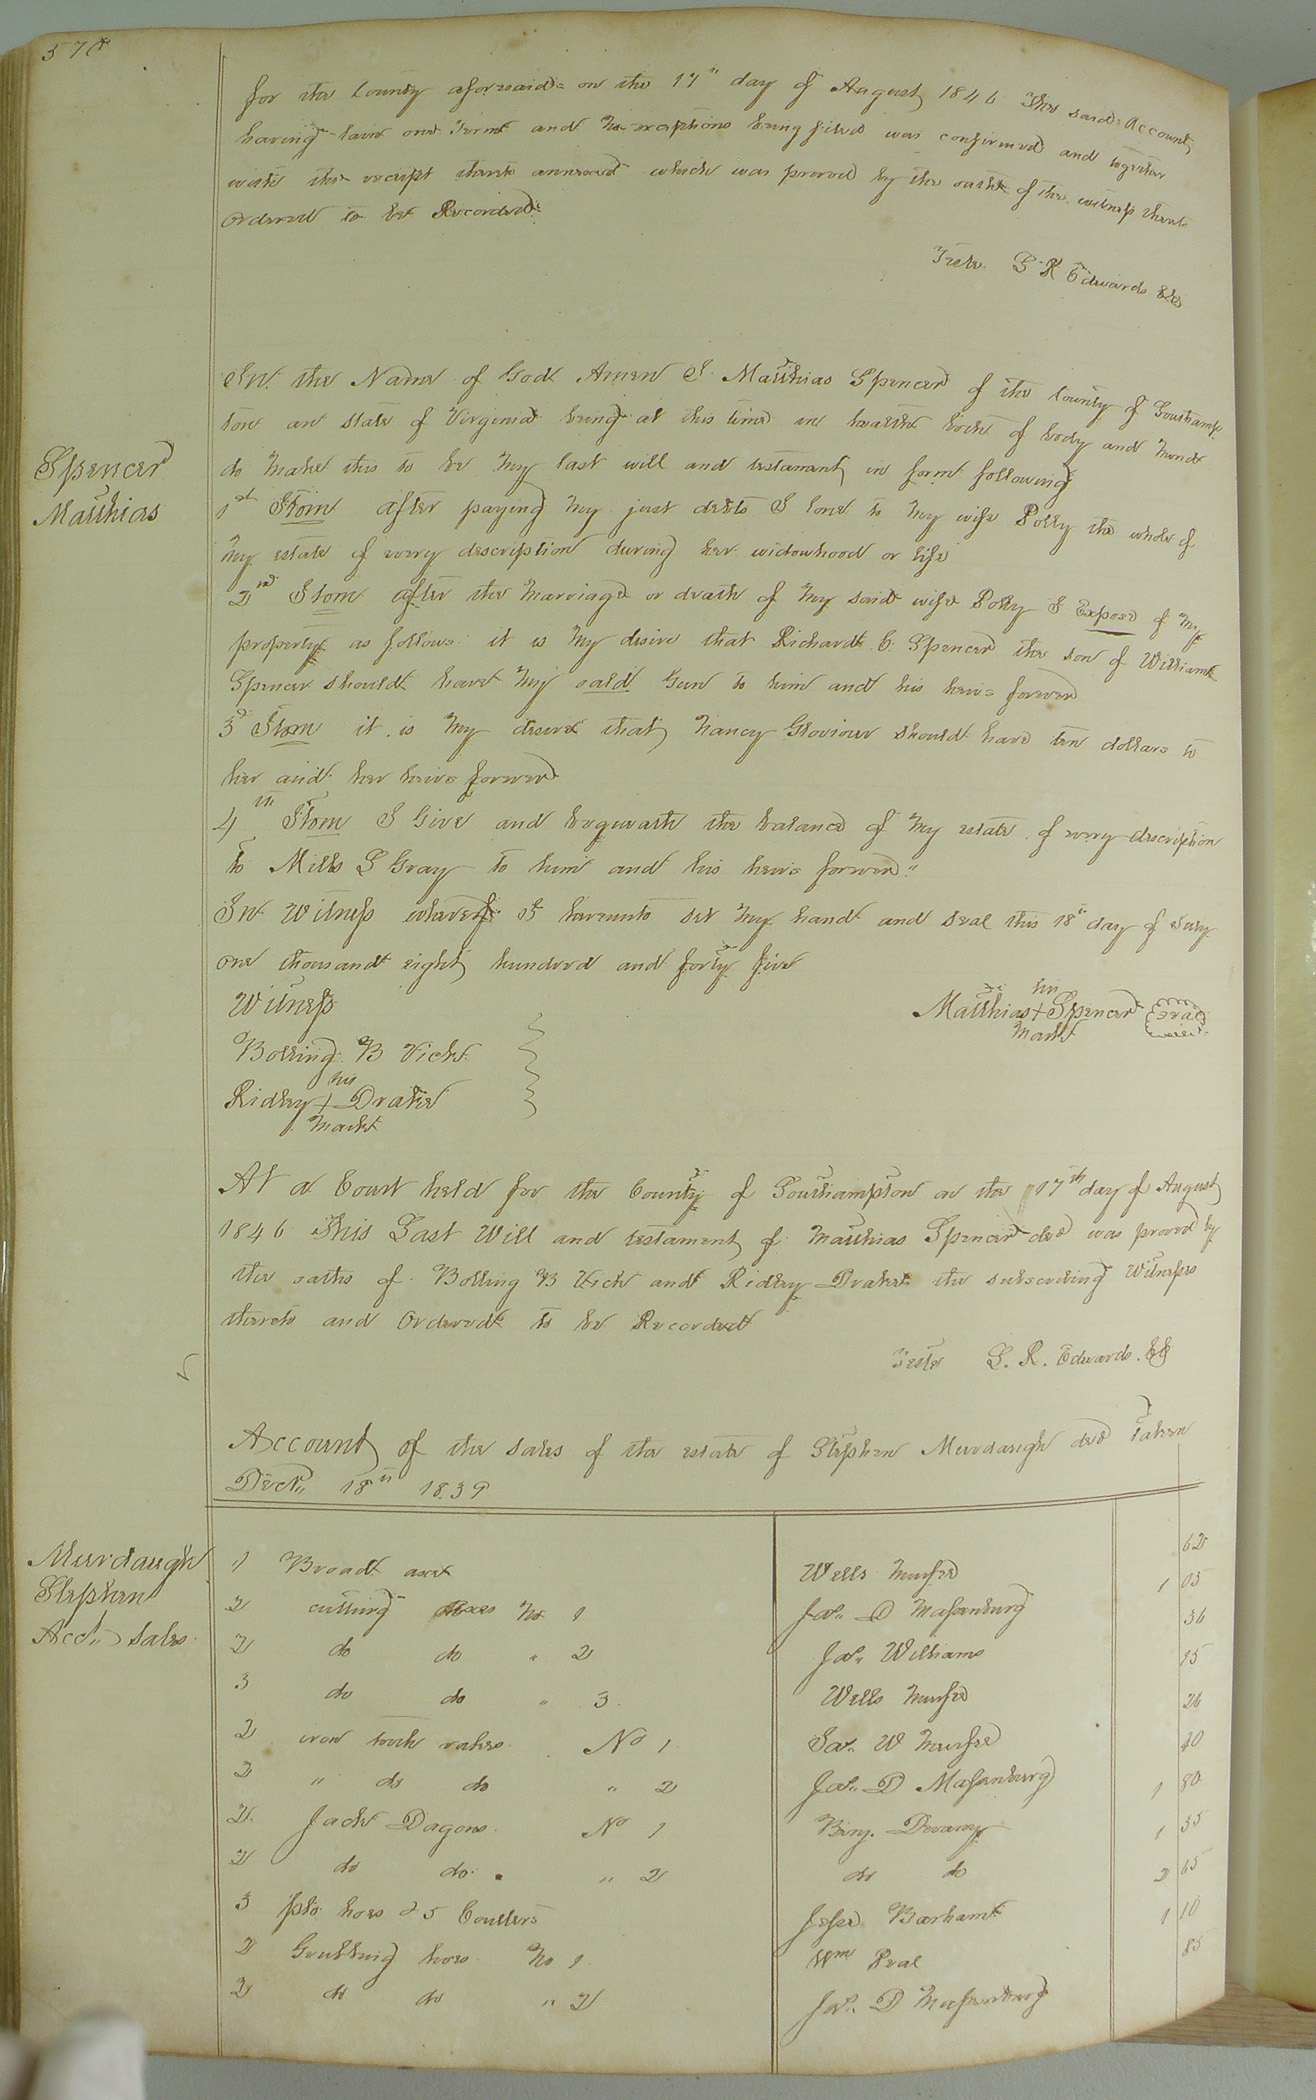 for the County aforesaid on the 17" day of August 1846 This said Account
having lain one Term and no exceptions being filed was confirmed and together
with the receipt thereto annexed which was proved by the oath of the witness thereto
Ordered to be Recorded
Teste L R Edwards
Spencer
Matthias
In the Name of God Amen I Matthias Spencer of the County of Southamp
ton an State of Virginia being at this time in health both of body and mind
do make this to be my last will and testament in form following
1st Itom after paying my just debts I lone to my wife Polly the whole of
my estate of every description during her widowhood or life
2nd Itom after the marriage or death of my said wife Polly I Expose of my
property as follows it is my desire that Richard C Spencer the son of William
Spencer should have my said Gun to him and his heirs forever
3d Itom it is my desire that Nancy Gloviour should have ten dollars to
her and her heirs forever
4th Itom I Give and bequeath the balance of my estate of every description
to Mills L Gray to him and his heirs forever"
In Witness whereof I hereunto set my hand and seal this 18th day of July
one thousand eight hundred and forty five
Witness
his
Matthias + Spencer Seal
mark
Bolling B Vick
his
Ridley + Drake
mark
At a Court held for the County of Southampton on the 17th day of August
1846 This Last Will and testament of Matthias Spencer decd was proved by
the oaths of Bolling B Vick and Ridley Drake the subscribing Witnesses
thereto and Ordered to be Recorded
Teste L. R. Edwards.
Account of the sales of the estate of Stephen Murdaugh decd Taken
Dec" 18th 1839
Murdaugh
Stephen
Acct" Sales
1 Broad axe Wells Murfee 62
2 cutting axes No 1 Jas. D Massenburg 1 05
2 do do " 2 Jas. Williams 36
3 do do " 3. Wells Murfee 15
2 iron tooth rakes No 1 W Murfee 26
2 " do do " 2 Jas. D Massenburg 40
2 Jack Dagons No 1 Benj. Devany 1 80
2 do do " 2 do do 1 35
3 hoes & 5 Coulters Jesse Barham 2 65
2 Grubbing hoes No 1 Wm Peal 1 10
2 do do " 2 Jas. D Massenburg 85